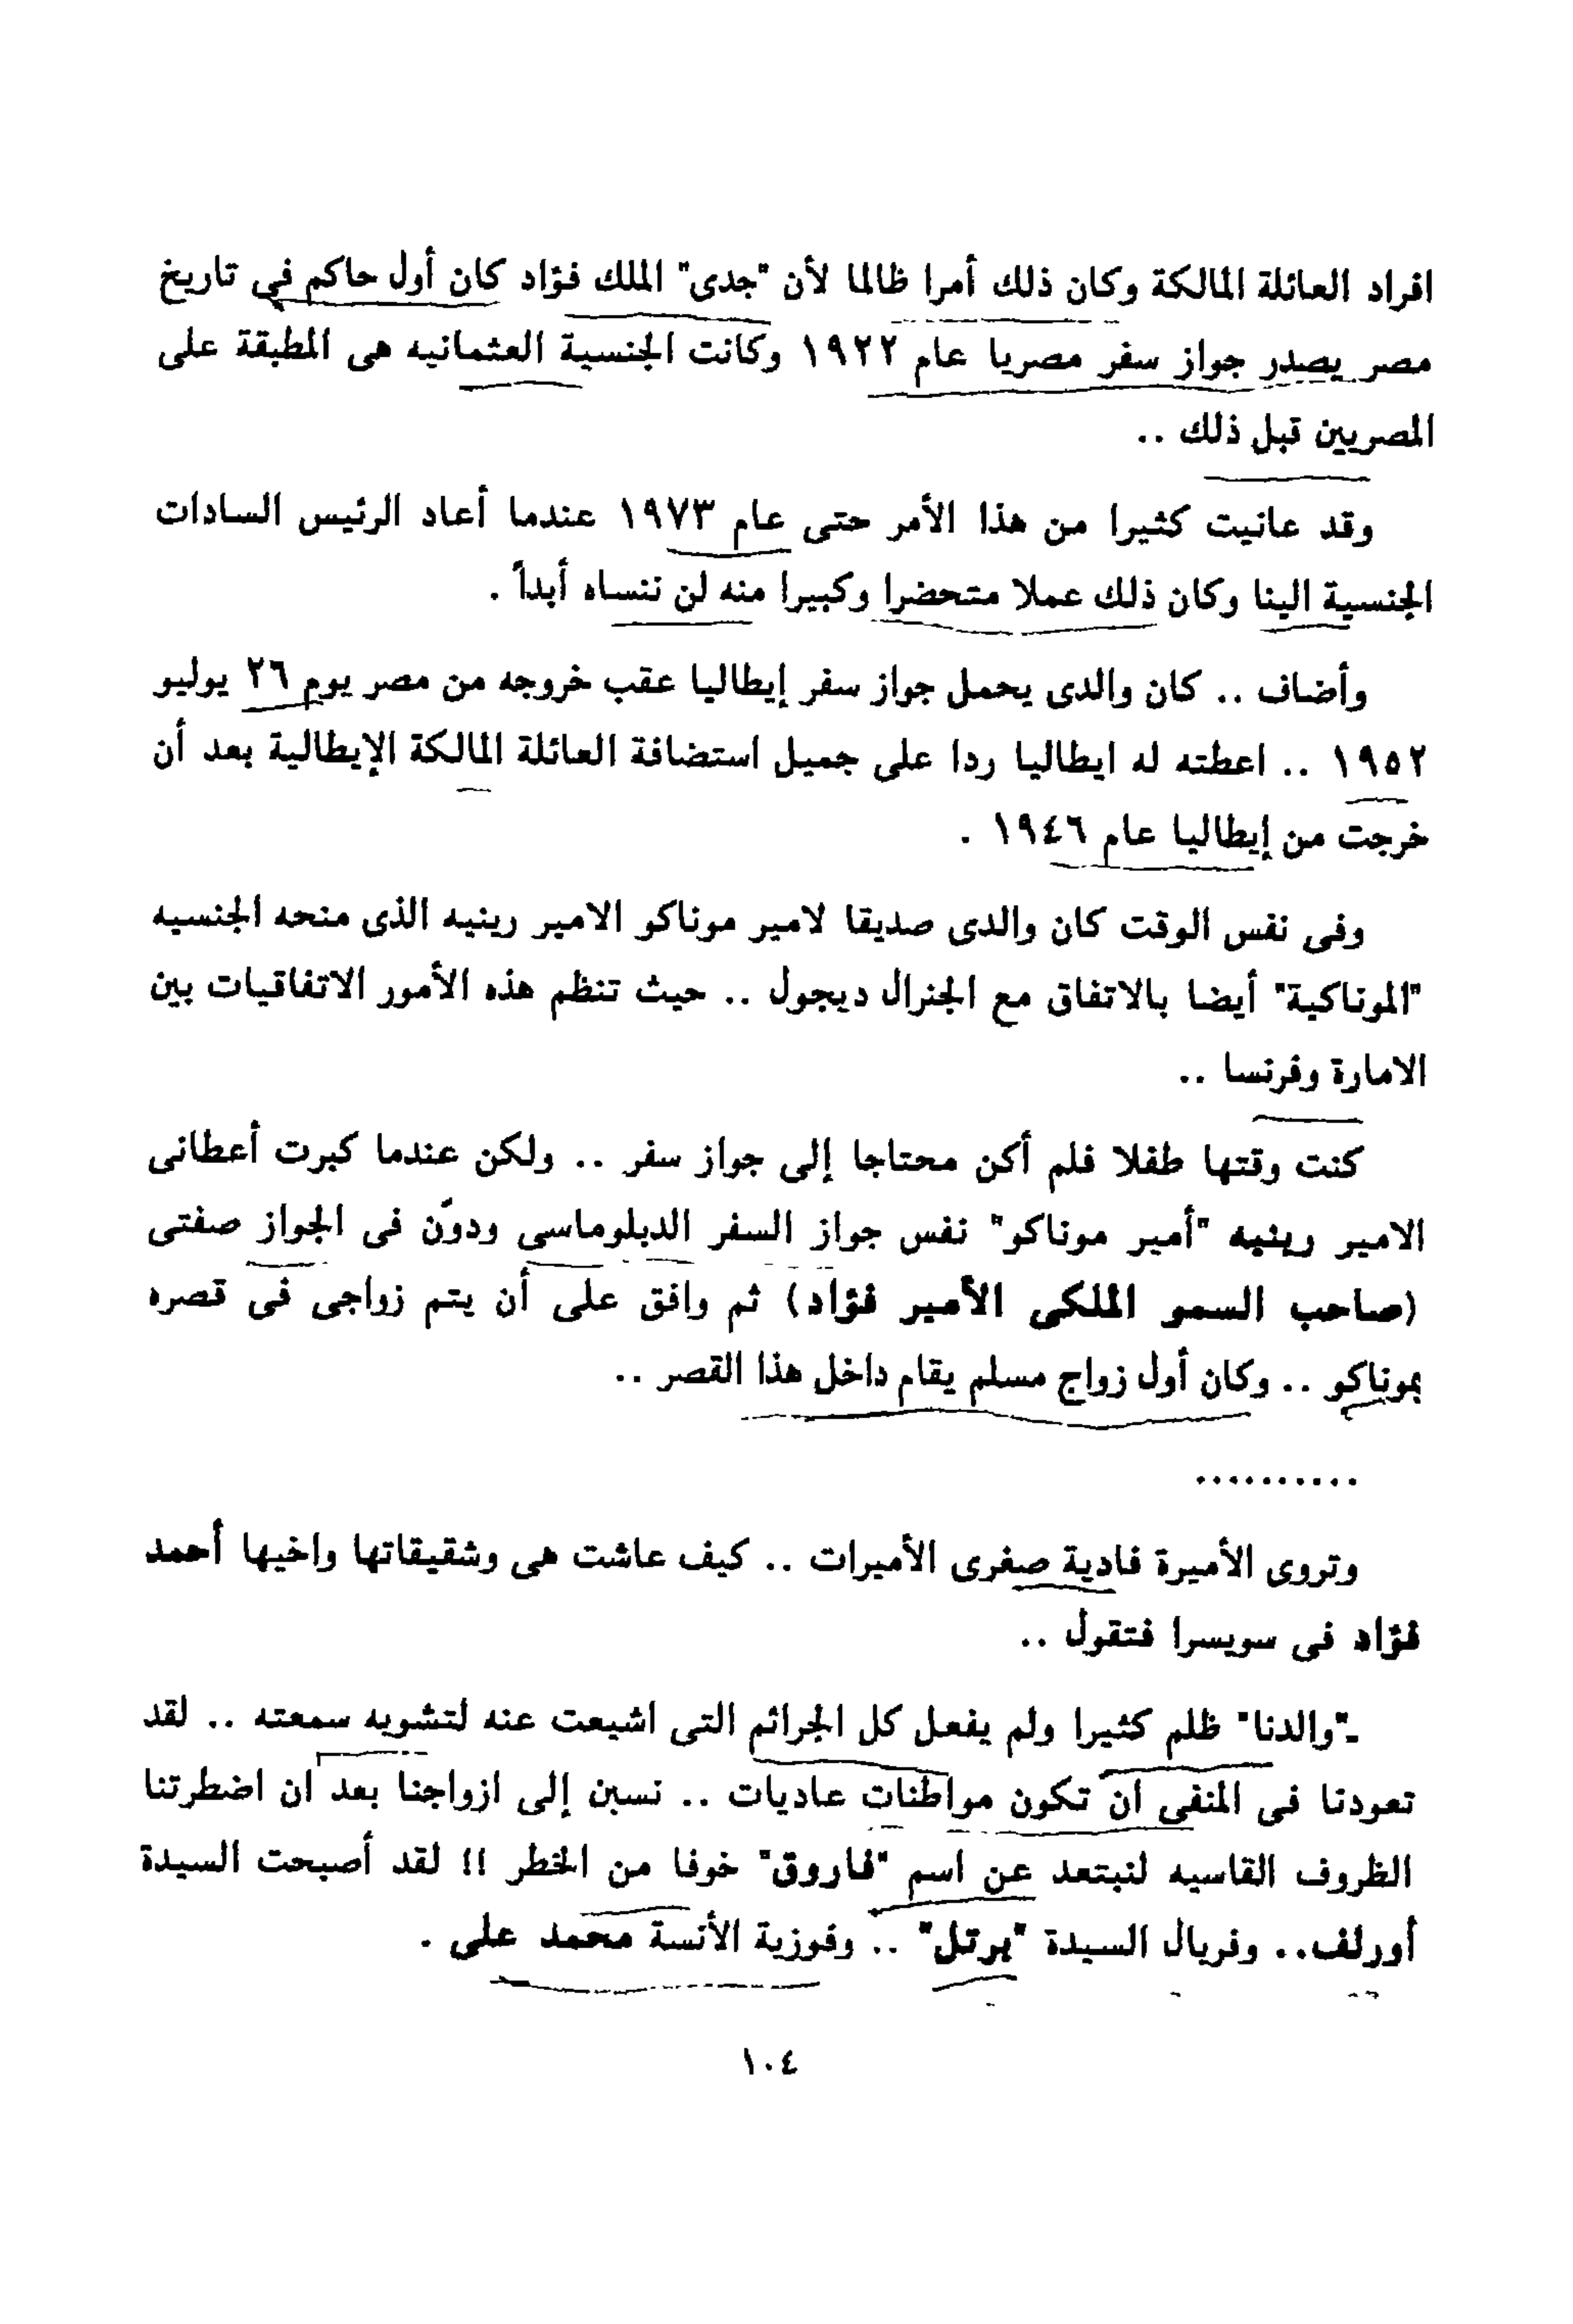 افراد العائلة المالكة وكان ذلك أمرا ظالما لأن "جدى" الملك فؤاد كان أول حاكم في تاريخ
مصر يصدر جواز سفر مصريا عام ١٩٢٢ وكانت الجنسية العثمانيه هى المطبقة على
المصريين قبل ذلك ..
وقد عانيت كثيرا من هذا الأمر حتى عام ١٩٧٣ عندما أعاد الرئيس السادات
الجنسية الينا وكان ذلك عملا متحضرا وكبيرا منه لن ننساه أبداً .
وأضاف .. كان والدى يحمل جواز سفر إيطاليا عقب خروجه من مصر يوم ٢٦ يوليو
١٩٥٢ .. اعطته له ايطاليا ردا على جميل استضافة العائلة المالكة الإيطالية بعد أن
خرجت من إيطاليا عام ١٩٤٦ .
وفى نفس الوقت كان والدى صديقا لامير موناكو الامير رينيه الذى منحه الجنسيه
"الموناكية" أيضا بالاتفاق مع الجنرال ديجول .. حيث تنظم هذه الأمور الاتفاقيات بين
الامارة وفرنسا ..
كنت وقتها طفلا فلم أكن محتاجا إلى جواز سفر .. ولكن عندما كبرت أعطانى
الامير رينيه "أمير موناكو" نفس جواز السفر الدبلوماسى ودوّن فى الجواز صفتى
(صاحب السمو الملكى الأمير فؤاد) ثم وافق على أن يتم زواجى فى قصره
بموناكو .. وكان أول زواج مسلم يقام داخل هذا القصر ..
..........
وتروى الأميرة فادية صغرى الأميرات .. كيف عاشت هى وشقيقاتها واخيها أحمد
فؤاد فى سويسرا فتقول ..
ـ"والدنا" ظلم كثيرا ولم يفعل كل الجرائم التى اشيعت عنه لتشويه سمعته .. لقد
تعودنا فى المنفى ان تكون مواطنات عاديات .. نسبن إلى ازواجنا بعد ان اضطرتنا
الظروف القاسيه لنبتعد عن اسم "فاروق" خوفا من الخطر !! لقد أصبحت السيدة
أورلف.. وفريال السيدة "برتل" .. وفوزية الأنسة محمد على .
١٠٤